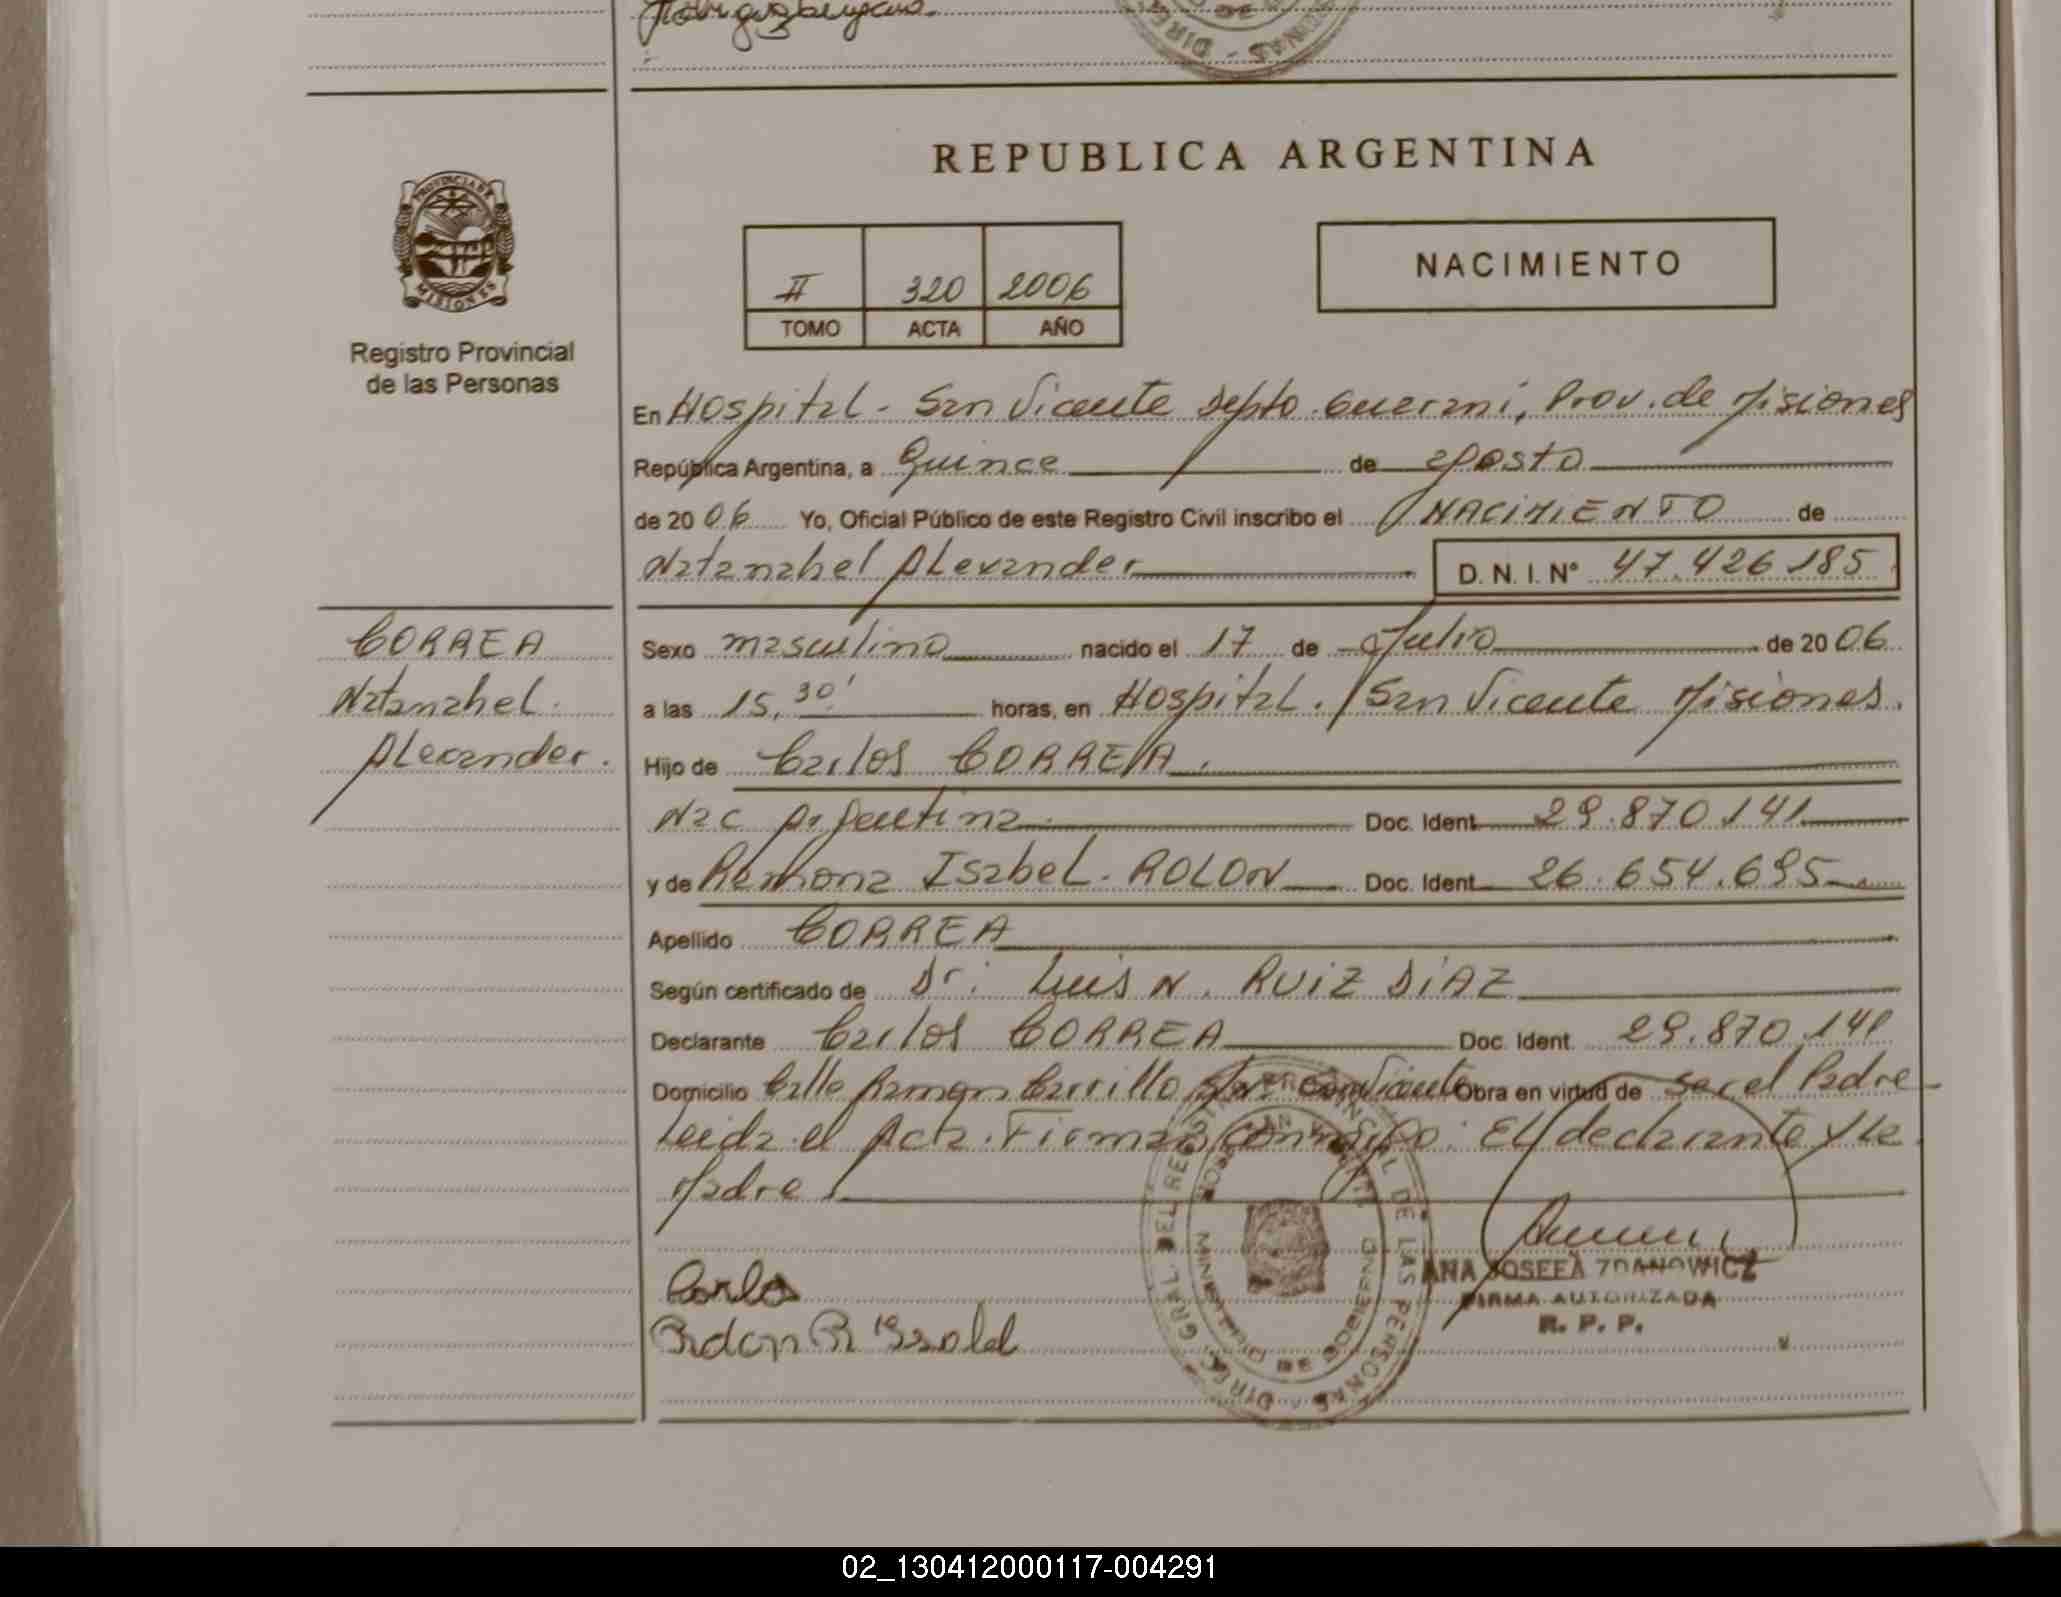 REPUBLICA ARGENTINA
PROVINCIA DE MISIONES
Registro Provincial
de las Personas
II 320 2006
TOMO ACTA AÑO
NACIMIENTO
En Hospital - San Vicente Depto. Guarani, Prov. de Misiones
República Argentina, a Quince de agosto
de 2006 Yo, Oficial Público de este Registro Civil inscribo el NACIMIENTO de
Natanahel Alexander D. N. I. Nº 47.426.185
CORREA
Natanahel
Alexander.
Sexo masculino nacido el 17 de Julio de 2006
a las 15,30' horas, en Hospital. San Vicente Misiones.
Hijo de Carlos CORREA.
Nac Argentina Doc. Ident. 29.870.141
y de Ramona Isabel. ROLON Doc. Ident. 26.654.695
Apellido CORREA
Según certificado de Dr. Luis N. RUIZ DIAZ
Declarante Carlos CORREA Doc. Ident. 29.870.141
Domicilio Calle Ramon Carrillo San Vicente Obra en virtud de ser el Padre
Leida el Acta. Firman conmigo: El declarante y la
Madre
Carlos
ANA JOSEFA ZDANOWICZ
FIRMA AUTORIZADA
R. P. P.
DIREC. GRAL. DEL REGISTRO PROVINCIAL DE LAS PERSONAS
02_130412000117-004291